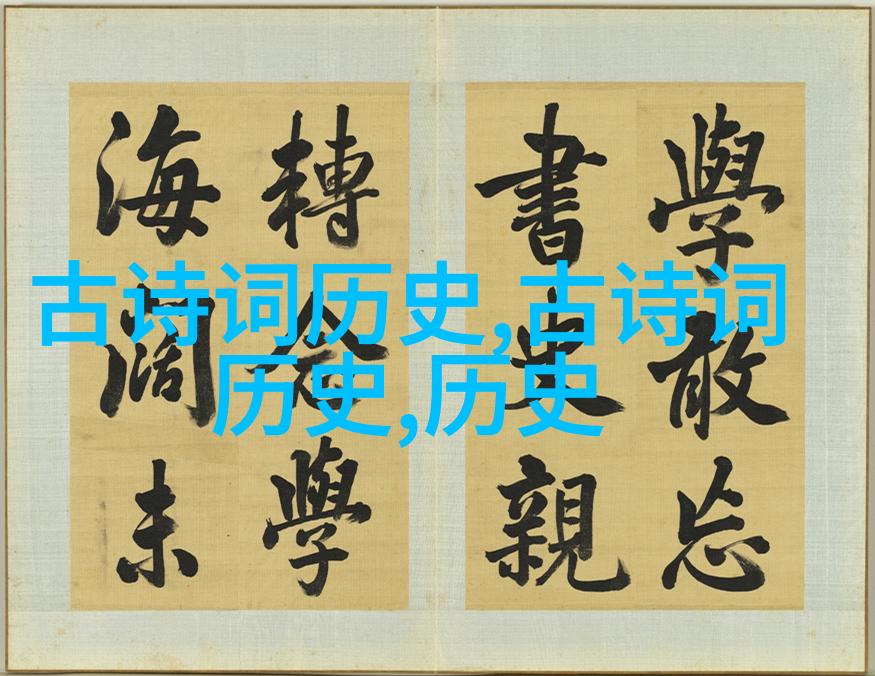 古诗词历史,古诗词
历史,历史
學敢忘
書史親
轉學
海闊未